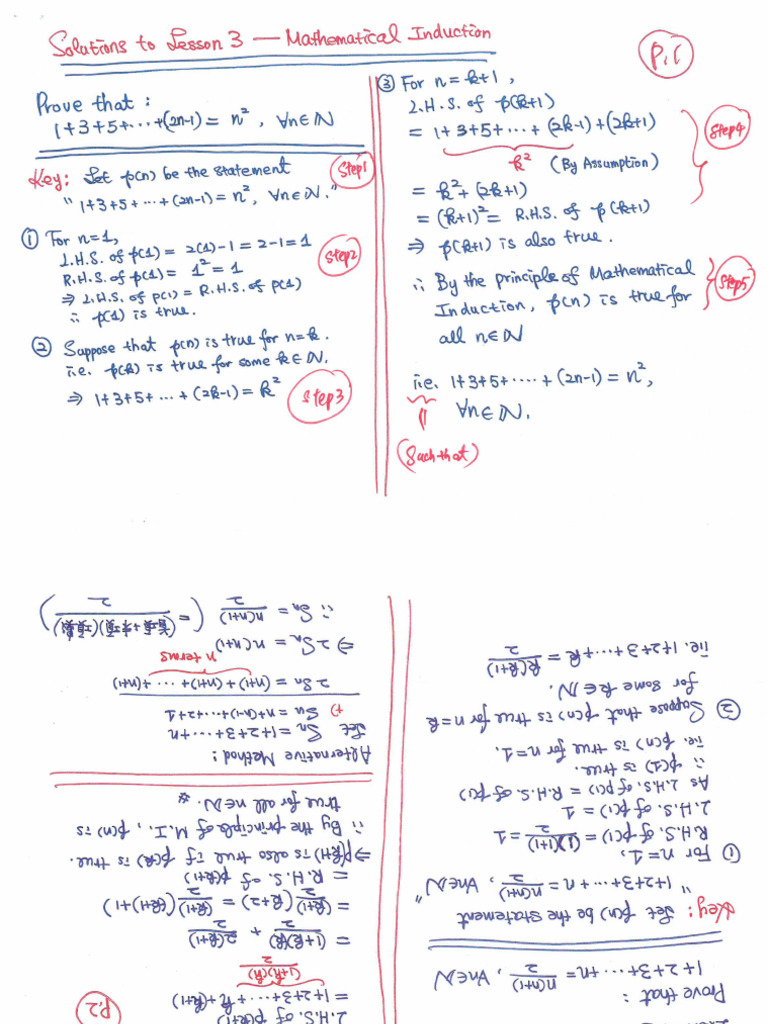 Solutions to Lesson 3 — Mathematical Induction
P.1
Prove that :
1+3+5+⋯+(2n-1) = n², ∀n∈ℕ
Key: Let p(n) be the statement
Step1
" 1+3+5+⋯+(2n-1) = n², ∀n∈ℕ. "
① For n=1,
L.H.S. of p(1) = 2(1)-1 = 2-1 = 1
R.H.S. of p(1) = 1² = 1
Step2
⇒ L.H.S. of p(1) = R.H.S. of p(1)
∴ p(1) is true.
② Suppose that p(n) is true for n=k.
i.e. p(k) is true for some k∈ℕ.
⇒ 1+3+5+⋯+(2k-1) = k²
Step3
③ For n=k+1,
L.H.S. of p(k+1)
= 1+3+5+⋯+(2k-1)+(2k+1)
Step4
k² (By Assumption)
= k²+(2k+1)
= (k+1)² = R.H.S. of p(k+1)
⇒ p(k+1) is also true.
∴ By the principle of Mathematical
Induction, p(n) is true for
Step5
all n∈ℕ
i.e. 1+3+5+⋯⋅+(2n-1) = n²,
∀n∈ℕ.
(Such that)
Prove that :
1+2+3+⋯+n = n(n+1)/2, ∀n∈ℕ
Key: Let p(n) be the statement
" 1+2+3+⋯+n = n(n+1)/2, ∀n∈ℕ "
① For n=1,
R.H.S. of p(1) = (1)(1+1)/2 = 1
L.H.S. of p(1) = 1
As L.H.S. of p(1) = R.H.S. of p(1)
∴ p(1) is true.
i.e. p(n) is true for n=1.
② Suppose that p(n) is true for n=k
for some k∈ℕ.
i.e. 1+2+3+⋯+k = k(k+1)/2
P.2
L.H.S. of p(k+1)
= 1+2+3+⋯+k+(k+1)
(1+k)(k)/2
= (1+k)(k)/2 + 2(k+1)/2
= (k+1)/2 (k+2) = (k+1)/2 ((k+1)+1)
= R.H.S. of p(k+1)
⇒ p(k+1) is also true if p(k) is true.
∴ By the principle of M.I., p(n) is
true for all n∈ℕ.
Alternative Method :
Let Sn = 1+2+3+⋯+n
+) Sn = n+(n-1)+⋯+2+1
2Sn = (n+1)+(n+1)+⋯+(n+1)
n terms
⇒ 2Sn = n(n+1)
∴ Sn = n(n+1)/2